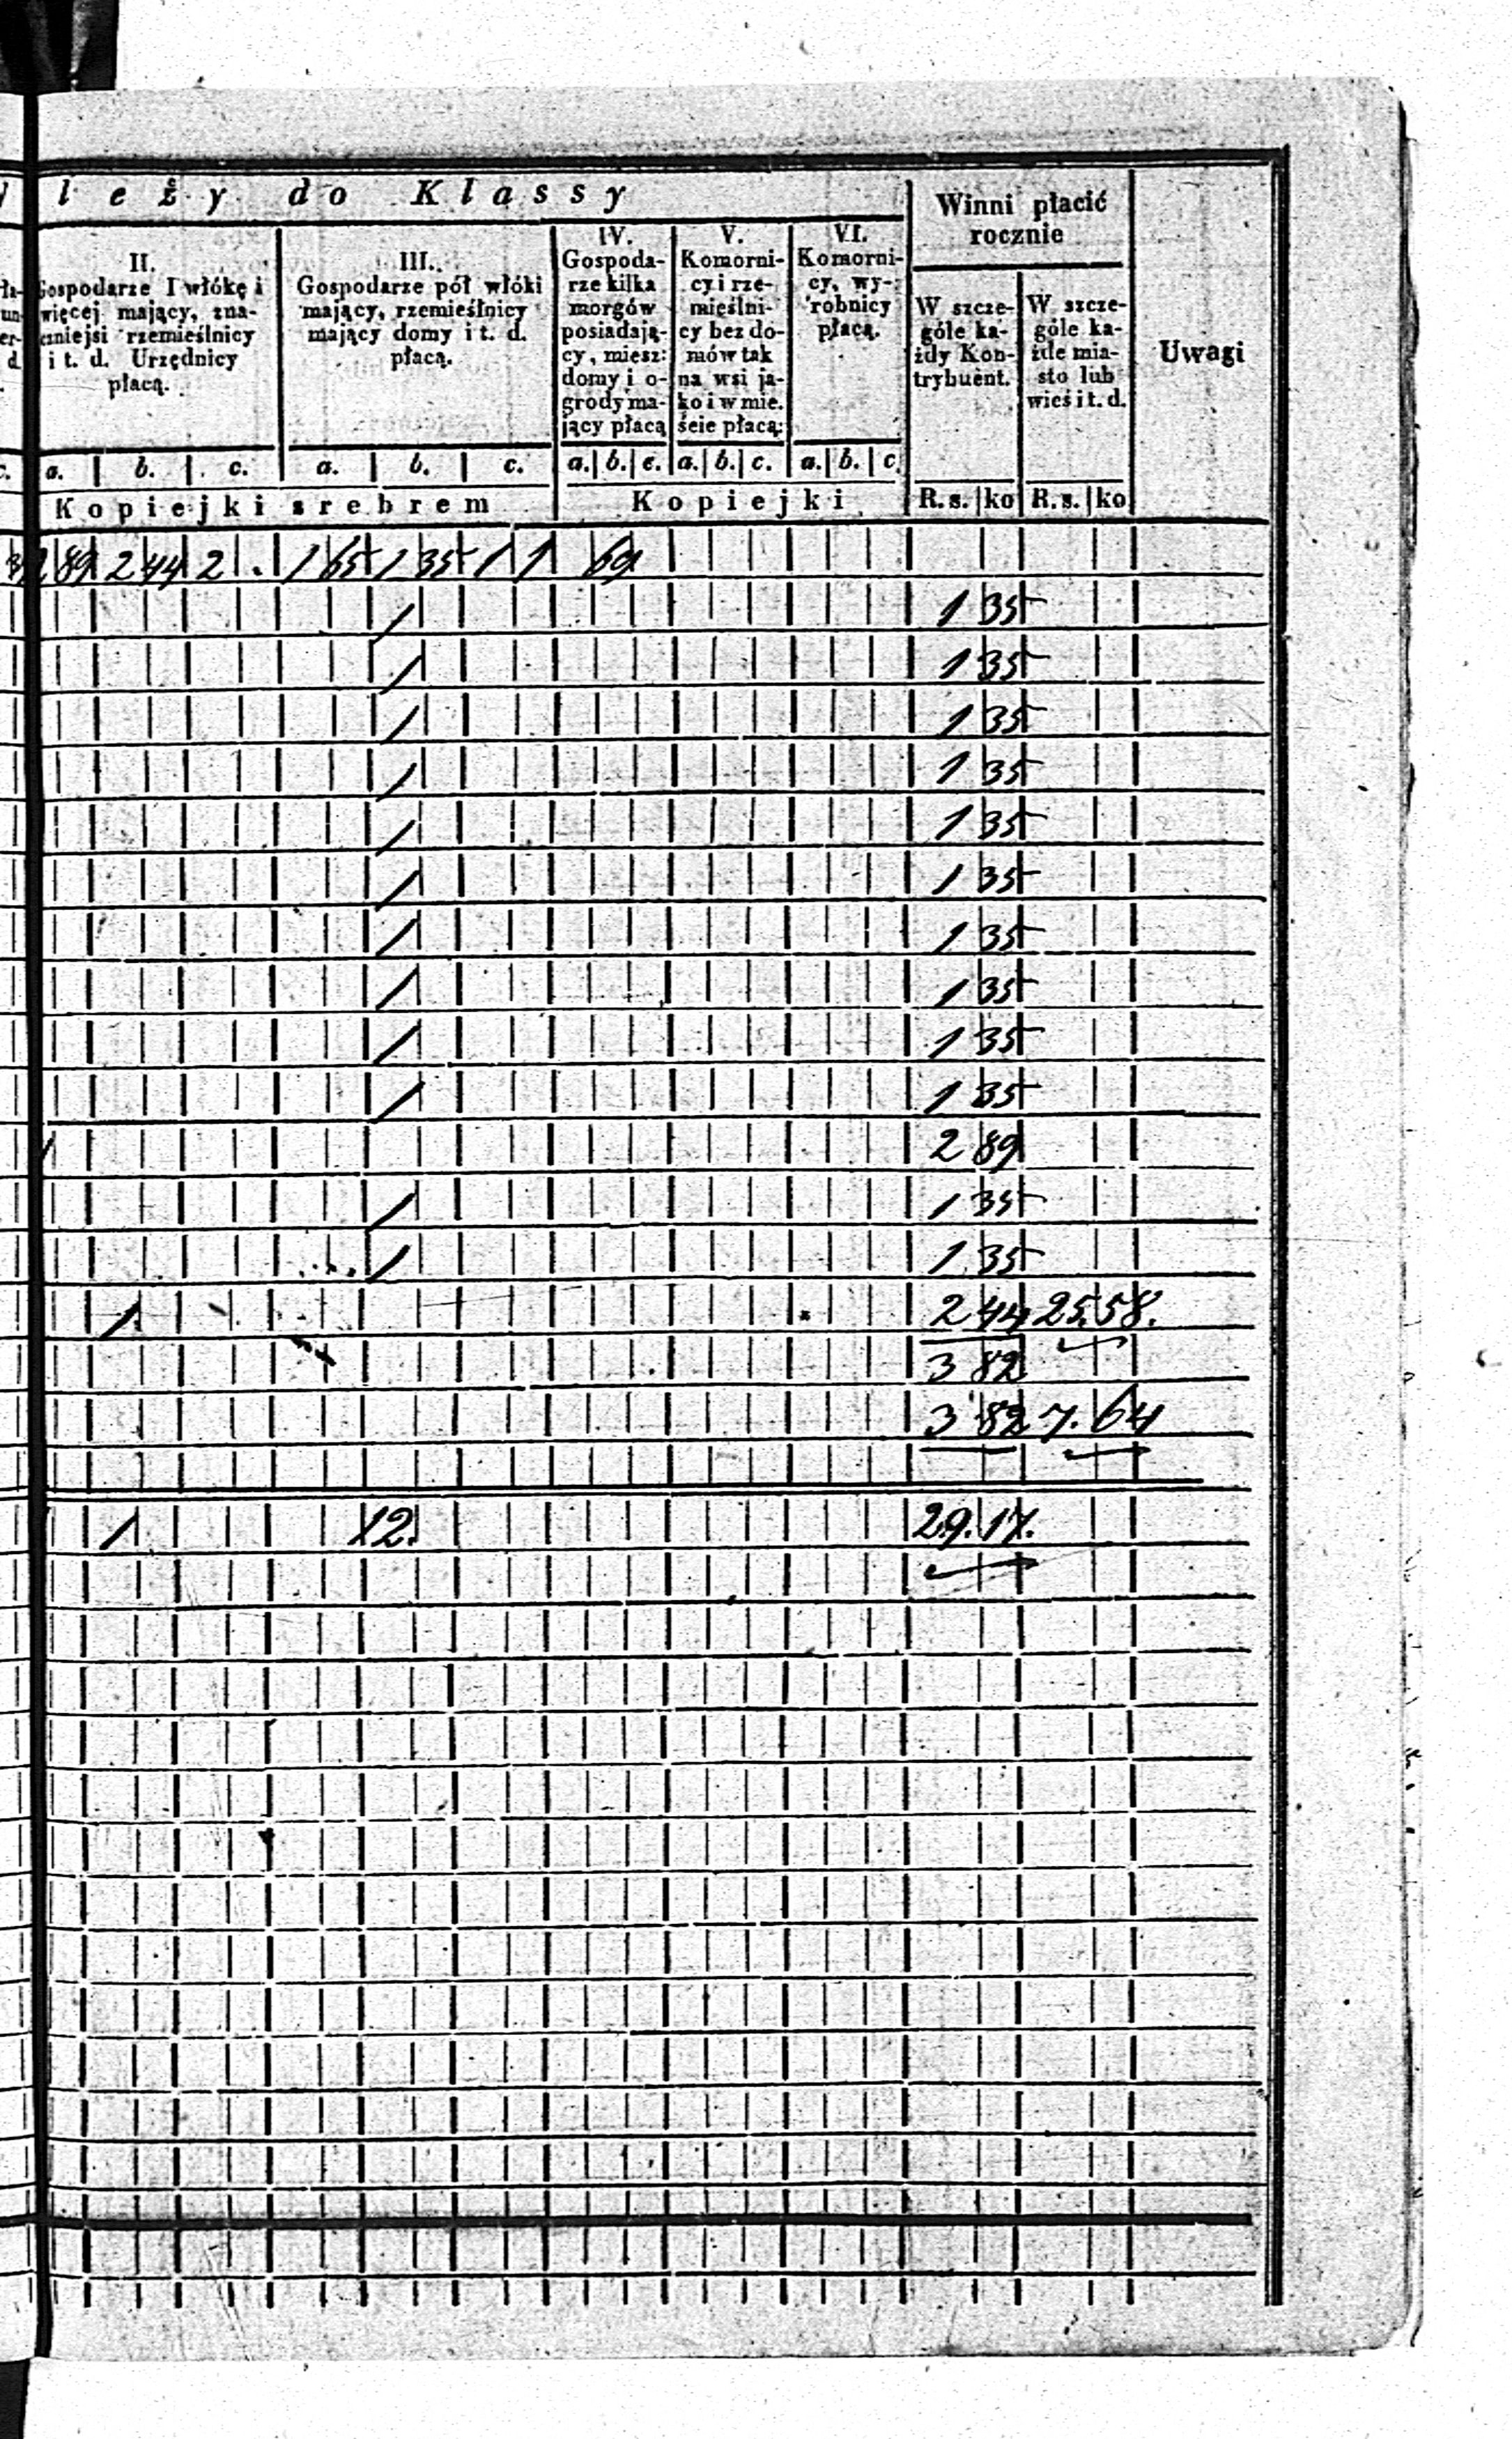 leży do Klassy
Winni płacić
rocznie
II.
Gospodarze I włókę i
więcej mający, zna-
czniejsi rzemieślnicy
i t. d. Urzędnicy
płacą.
III.
Gospodarze pół włóki
mający, rzemieślnicy
mający domy i t. d.
płacą.
IV.
Gospoda-
rze kilka
morgów
posiadają-
cy, miesz:
domy i o-
grody ma-
jący płacą
V.
Komorni-
cy i rze-
mięślni-
cy bez do-
mów tak
na wsi ja-
ko i w mie.
ście płacą:
VI.
Komorni-
cy, wy-
robnicy
płacą.
W szcze-
góle ka-
żdy Kon-
trybuènt.
W szcze-
góle ka-
żde mia-
sto lub
wieś i t. d.
Uwagi
a. b. c. a. b. c. a. b. c. a. b. c. a. b. c.
Kopiejki srebrem Kopiejki R. s. ko R. s. ko
2 89 2 44 2 . 1 65 1 35 1 1 69
/ 1 35
/ 1 35
/ 1 35
/ 1 35
/ 1 35
/ 1 35
/ 1 35
/ 1 35
/ 1 35
/ 1 35
/ 2 89
/ 1 35
/ 1 35
1 2 44 25.58.
3 82
3 82 7. 64
1 12. 29. 17.